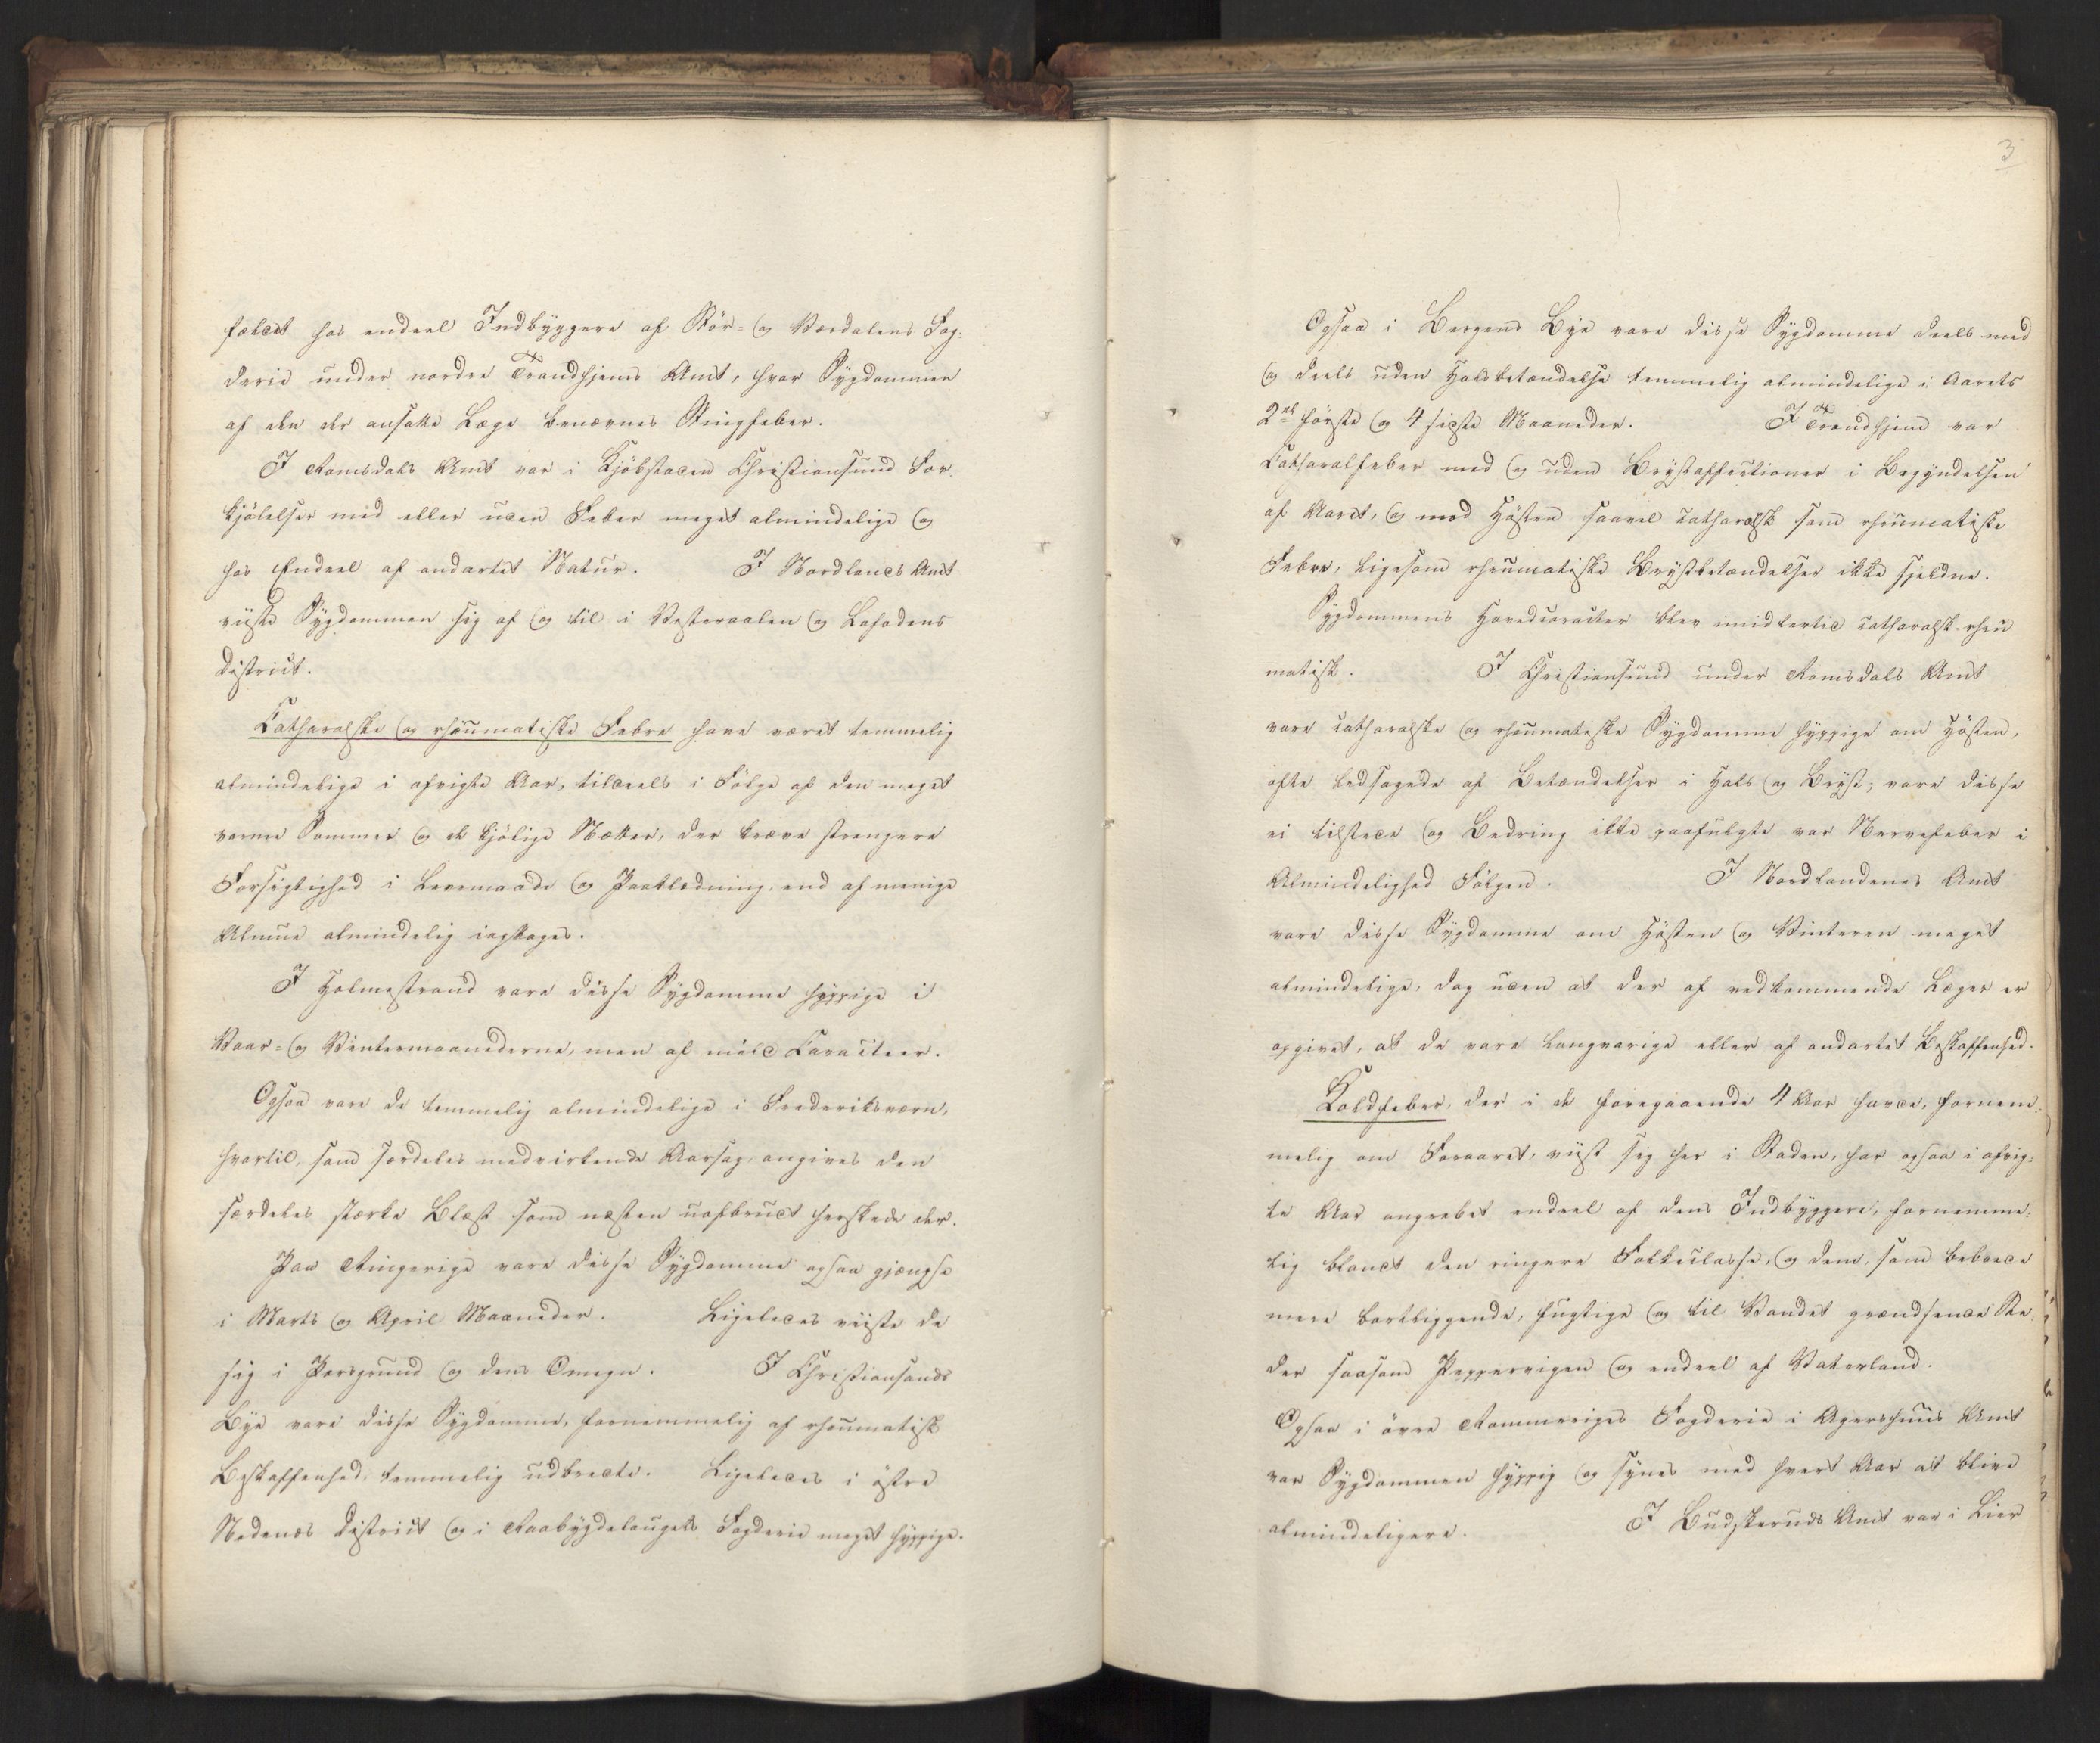 fældet hos endeel Indbyggere af Stör- og Værdalens Fog-
derie under nordre Trondhjems Amt, hvor Sygdommen
af den der ansatte Læge benævnes Stingfeber.
I Romsdals Amt var i Kjöbstaden Christiansund For
kjölelser med eller uden Feber meget almindelige og
hos Endeel af ondartet Natur. I Nordlands Amt
viiste Sygdommen sig af og til i Vesteraalen og Lofodens
District.
Catharalske og rheumatiske Febre have været temmelig
almindelige i afvigte Aar, tildeels i Fölge af den meget
varme Sommer og de kjölige Nætter, der kræve strengere
Forsigtighed i Levemaade og Paaklædning, end af menige
Almue almindelig iagttages.
I Holmestrand vare disse Sygdomme hyppige i
Vaar- og Vintermaanederne, men af mild Caracteer.
Ogsaa vare de temmelig almindelige i Frederiksværn,
hvortil, som særdeles medvirkende Aarsag, angives den
særdeles stærke Blæst som næsten uafbrudt herskede der.
Paa Ringerige vare disse Sygdomme ogsaa gjængse
i Marts og April Maaneder. Ligeledes viiste de
sig i Porsgrund og dens Omegn. I Christiansands
Bye vare disse Sygdomme, fornemmelig af rheumatisk
Beskaffenhed, temmelig udbredte. Ligeledes i östre
Nedenæs District og i Raabygdelaugets Fogderie meget hyppige.
3
Ogsaa i Bergens Bye vare disse Sygdomme deels med
og deels uden Halsbetændelse temmelig almindelige i Aarets
2de förste og 4 sidste Maaneder. I Trondhjem var
Catharalfeber med og uden Brystaffectioner i Begyndelsen
af Aaret, og mod Hösten saavel catharalsk som rheumatiske
Febre, ligesom rheumatiske Brystbetændelser ikke sjeldne.
Sygdommens Hovedcaracter blev imidlertid catharalsk-rheu
matisk. I Christiansund under Romsdals Amt
vare catharalske og rheumatiske Sygdomme hyppige om Hösten,
ofte ledsagede af Betændelser i Hals og Bryst; vare disse
ei tilstede og Bedring ikke paafulgte var Nervefeber i
Almindelighed Fölgen. I Nordlandenes Amt
vare disse Sygdomme om Hösten og Vinteren meget
almindelige, dog uden at der af vedkommende Læger er
opgivet, at de vare langvarige eller af ondartet Beskaffenhed.
Koldfeber, der i de foregaaende 4 Aar havde, fornem-
melig om Foraaret, viist sig her i Staden, har ogsaa i afvig-
te Aar angrebet endeel af dens Indbyggere, fornemme-
lig blandt den ringere Folkeclasse, og dem, som beboede
mere bortliggende, fugtige og til Vandet grændsende Ste
der saasom Peppervigen og endeel af Vaterland.
Ogsaa i övre Rommeriges Fogderie i Agershuus Amt
var Sygdommen hyppig og synes med hvert Aar at blive
almindeligere. I Budskeruds Amt var i Lier